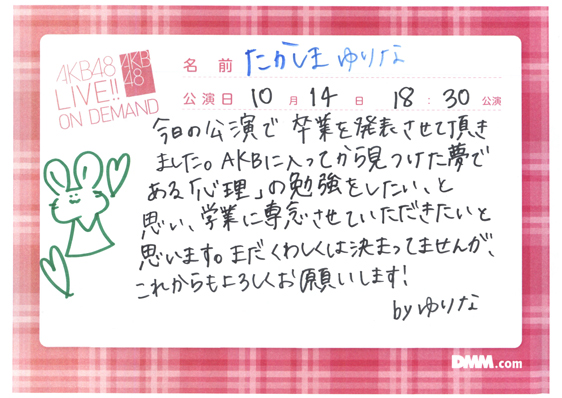 AKB48
LIVE!!
ON DEMAND
AKB
48
名前 たかしまゆりな
公演日 10月14日 18:30公演
今日の公演で卒業を発表させて頂き
ました。AKBに入ってから見つけた夢で
ある「心理」の勉強をしたい、と
思い、学業に専念させていただきたいと
思います。まだくわしくは決まってませんが、
これからもよろしくお願いします!
byゆりな
DMM.com